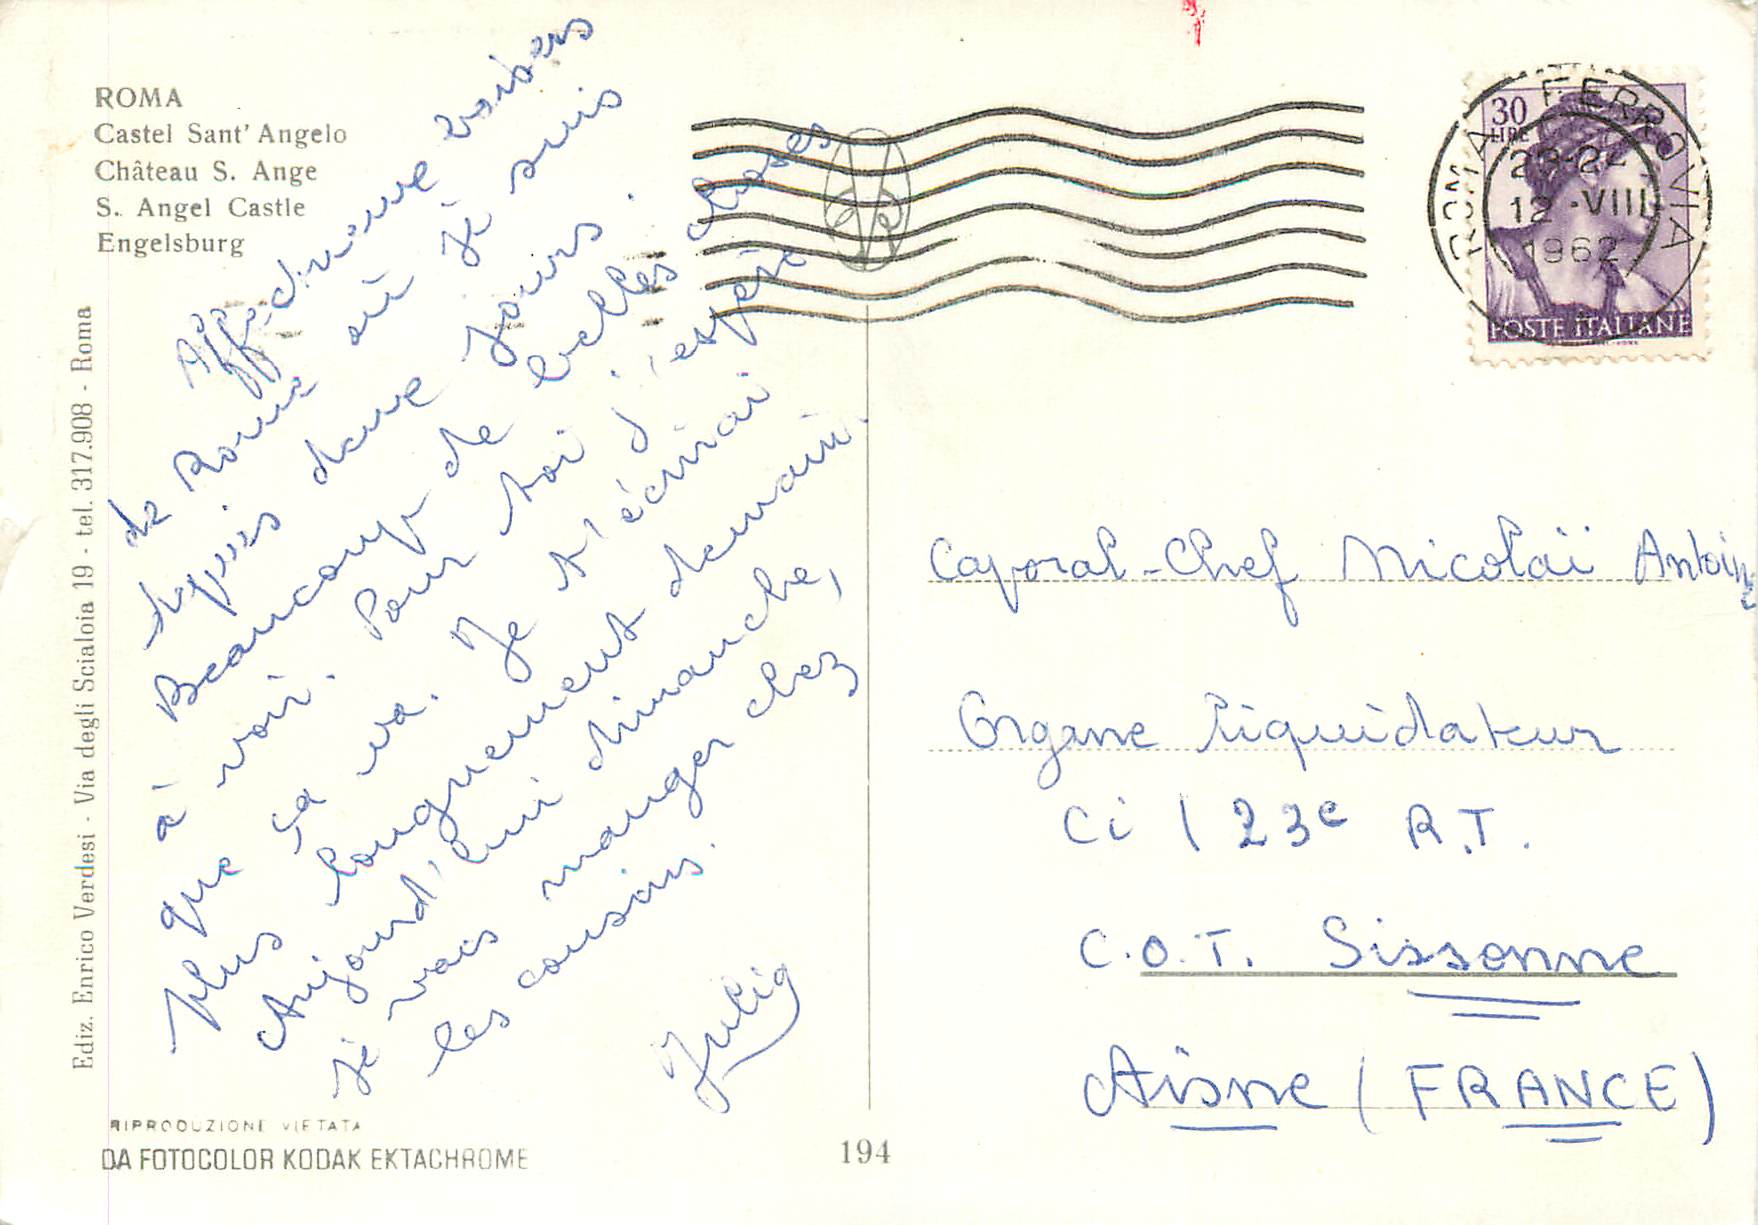 ROMA
Castel Sant' Angelo
Château S. Ange
S. Angel Castle
Engelsburg
Ediz. Enrico Verdesi - Via degli Scialoia 19 - tel. 317.908 - Roma
Affectueux baisers
de Rome où je suis
depuis deux jours.
Beaucoup de belles choses
à voir. Pour toi j'espère
que ça va. Je t'écrirai
plus longuement demain.
Aujourd'hui dimanche,
je vais manger chez
les cousins.
RIPRODUZIONE VIETATA
DA FOTOCOLOR KODAK EKTACHROME
194
30
LIRE
POSTE ITALIANE
ROMA FERROVIA
12-VIII
1962
Caporal-Chef Nicolaï Antoine
Organe liquidateur
Ci 1 23e R.T.
C.O.T. Sissonne
Aisne (FRANCE)